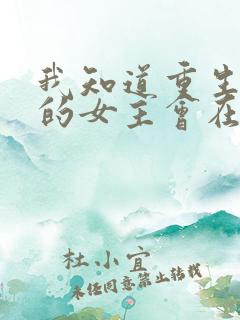 我知道重生
的女主会在
杜小宜
未经同意禁止转载